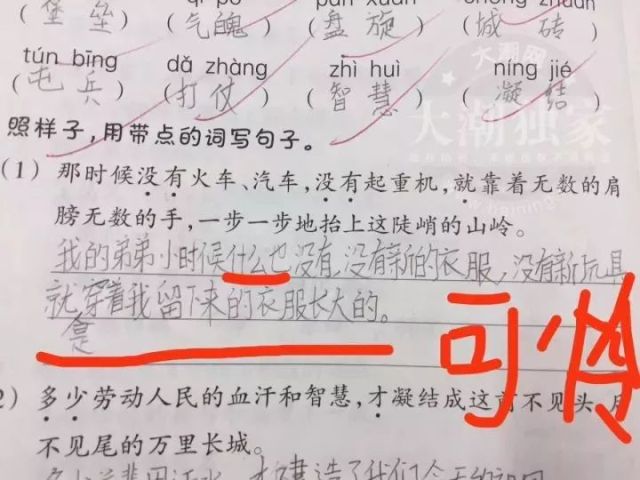 (堡垒) (气魄) (盘旋) (城砖)
tún bīng dǎ zhàng zhì huì níng jié
(屯兵) (打仗) (智慧) (凝结)
照样子，用带点的词写句子。
(1) 那时候没有火车、汽车，没有起重机，就靠着无数的肩
膀无数的手，一步一步地抬上这陡峭的山岭。
我的弟弟小时候什么也没有，没有新的衣服，没有新玩具
就穿着我留下来的衣服长大的。
可怜
2) 多少劳动人民的血汗和智慧，才凝结成这前不见头，
不见尾的万里长城。
大潮网
大潮独家